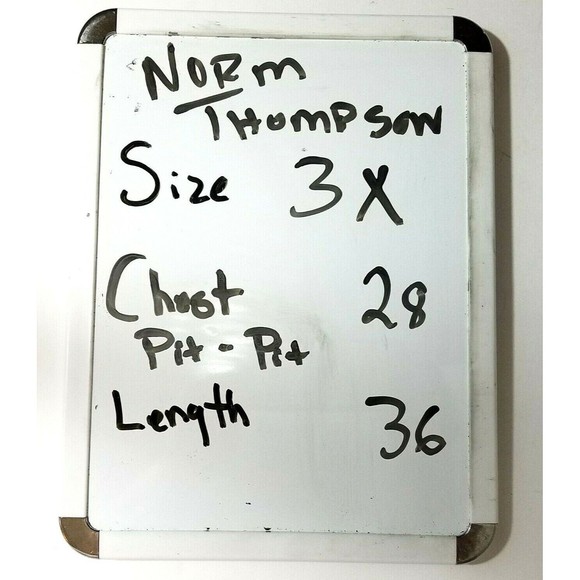 NORM
THOMPSON
Size 3X
Chest 28
Pit - Pit
Length 36